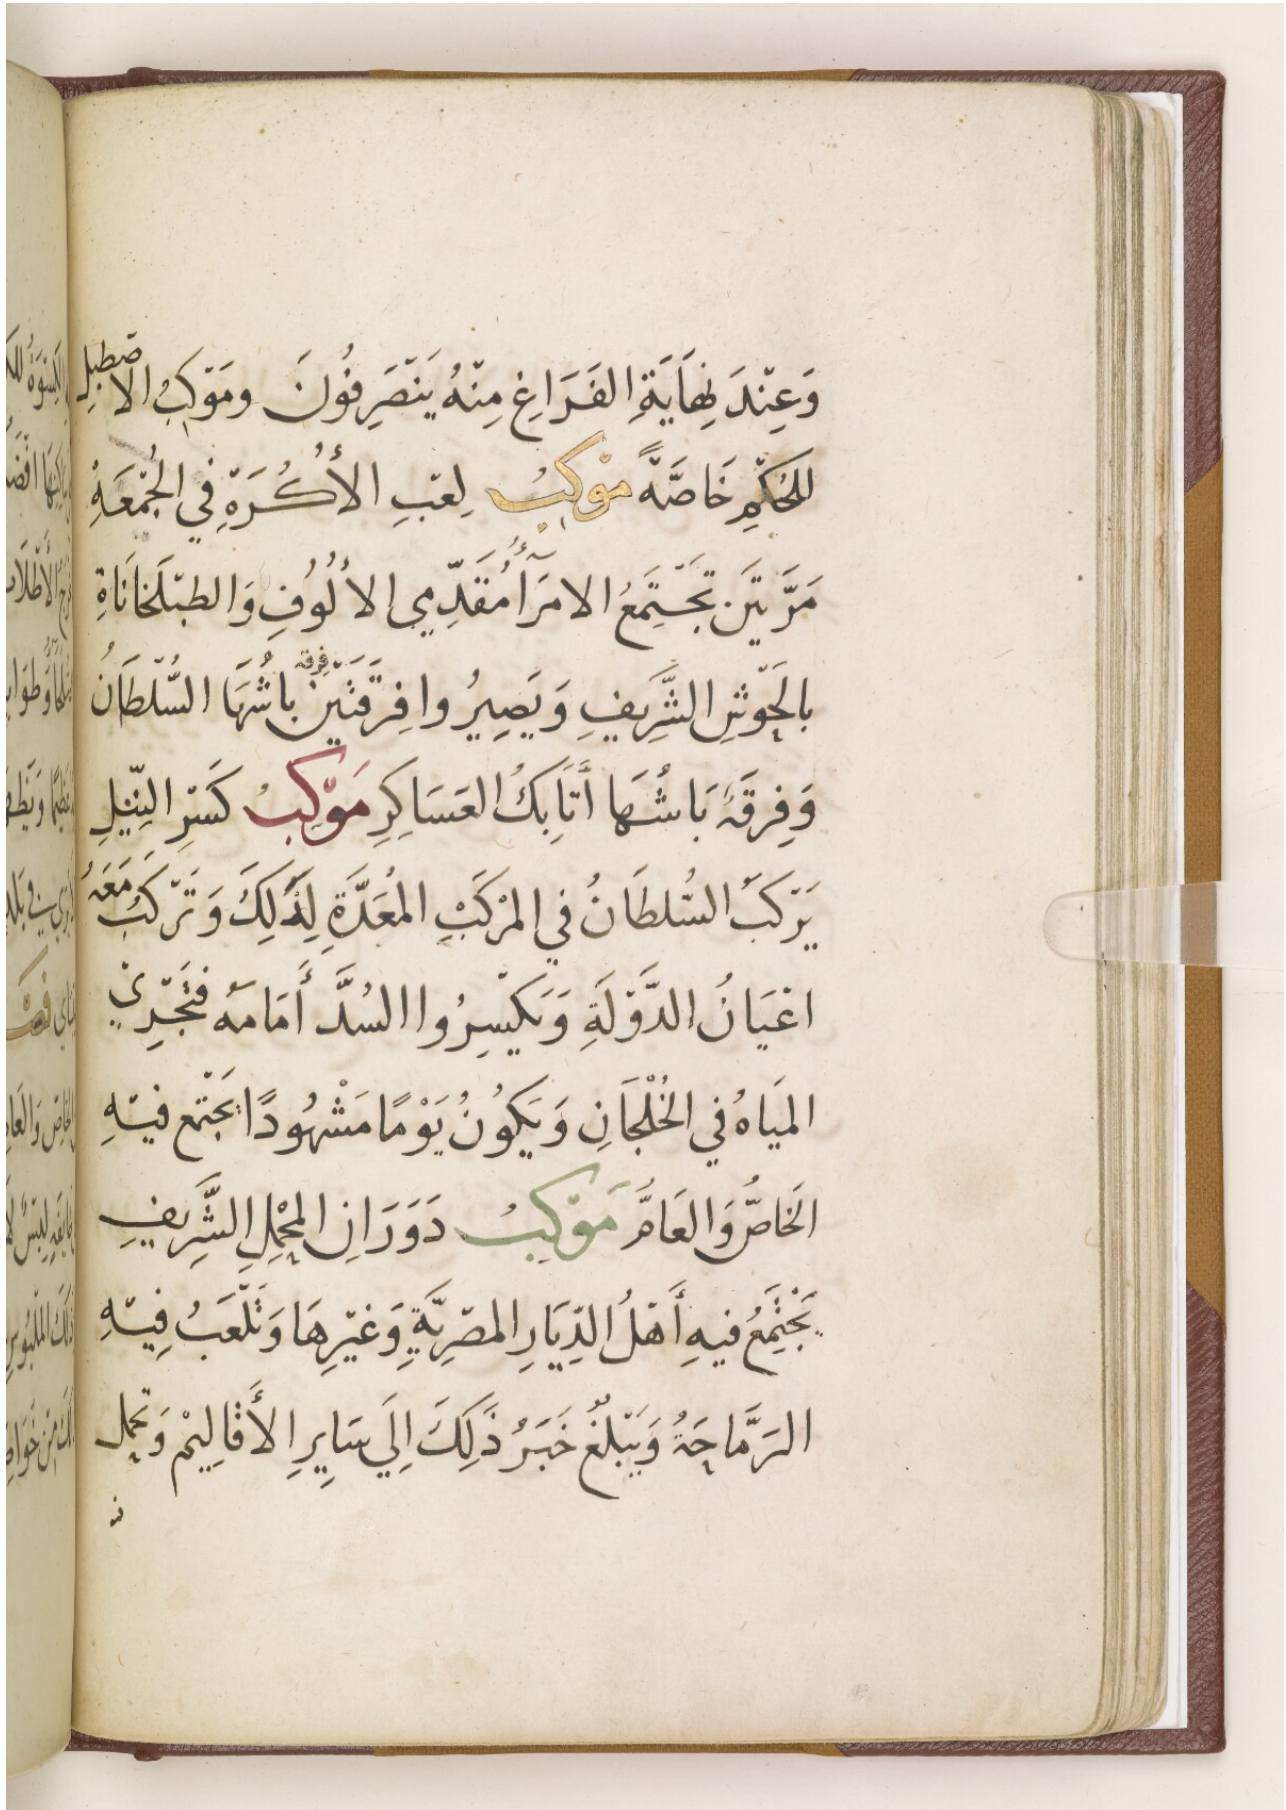 وَعِنْدَ نِهَايَةِ الفَرَاغِ مِنْهُ يَنْصَرِفُونَ ومَوْكِبُ الاصطبل
للحُكْمِ خَاصَّةً مَوْكِبُ لِعْبِ الأُكْرَةِ فِي الجُمْعَةِ
مَرَّتَيْنِ تَجْتَمِعُ الامَرَآءُ مُقَدِّمِي الاُلُوُفِ وَالطَبْلَخَانَاةِ
بالحَوْشِ الشَّرِيفِ وَيَصِيرُوا فِرْقَتَيْنْ فرقة بَاشُهَا السُّلْطَانُ
وَفِرقَةٌ بَاشُهَا أَتَابِكُ العَسَاكِرِ مَوْكِبُ كَسْرِ النِّيْلِ
يَرْكَبُ السُّلطَانُ فِي المَرْكَبِ المُعَدَّةِ لِذَلِكَ وَتَرْكَبُ مَعَهُ
اعْيَانُ الدَّوْلَةِ وَيَكْسِرُوا السُدَّ أَمَامَهُ فَتَجْرِي
المَيَاهُ فِي الخُلْجَانِ وَيَكُونُ يَوْمًا مَشْهُودًا يَجْتَمع فيْهِ
الخَاصُّ وَالعَامُّ مَوْكِبُ دَوَرَانِ المَحْمِلِ الشَّرِيفِ
يَجْتَمِعُ فيهِ أَهْلُ الدِّيَارِ المصْرِيَّةِ وَغيْرِهَا وَتَلْعَبُ فِيْهِ
الرَمَّاحَةُ وَيَبْلُغُ خَبَرُ ذَلِكَ اِلَي سَايِرِ الأَقَالِيْمْ وَتحمل